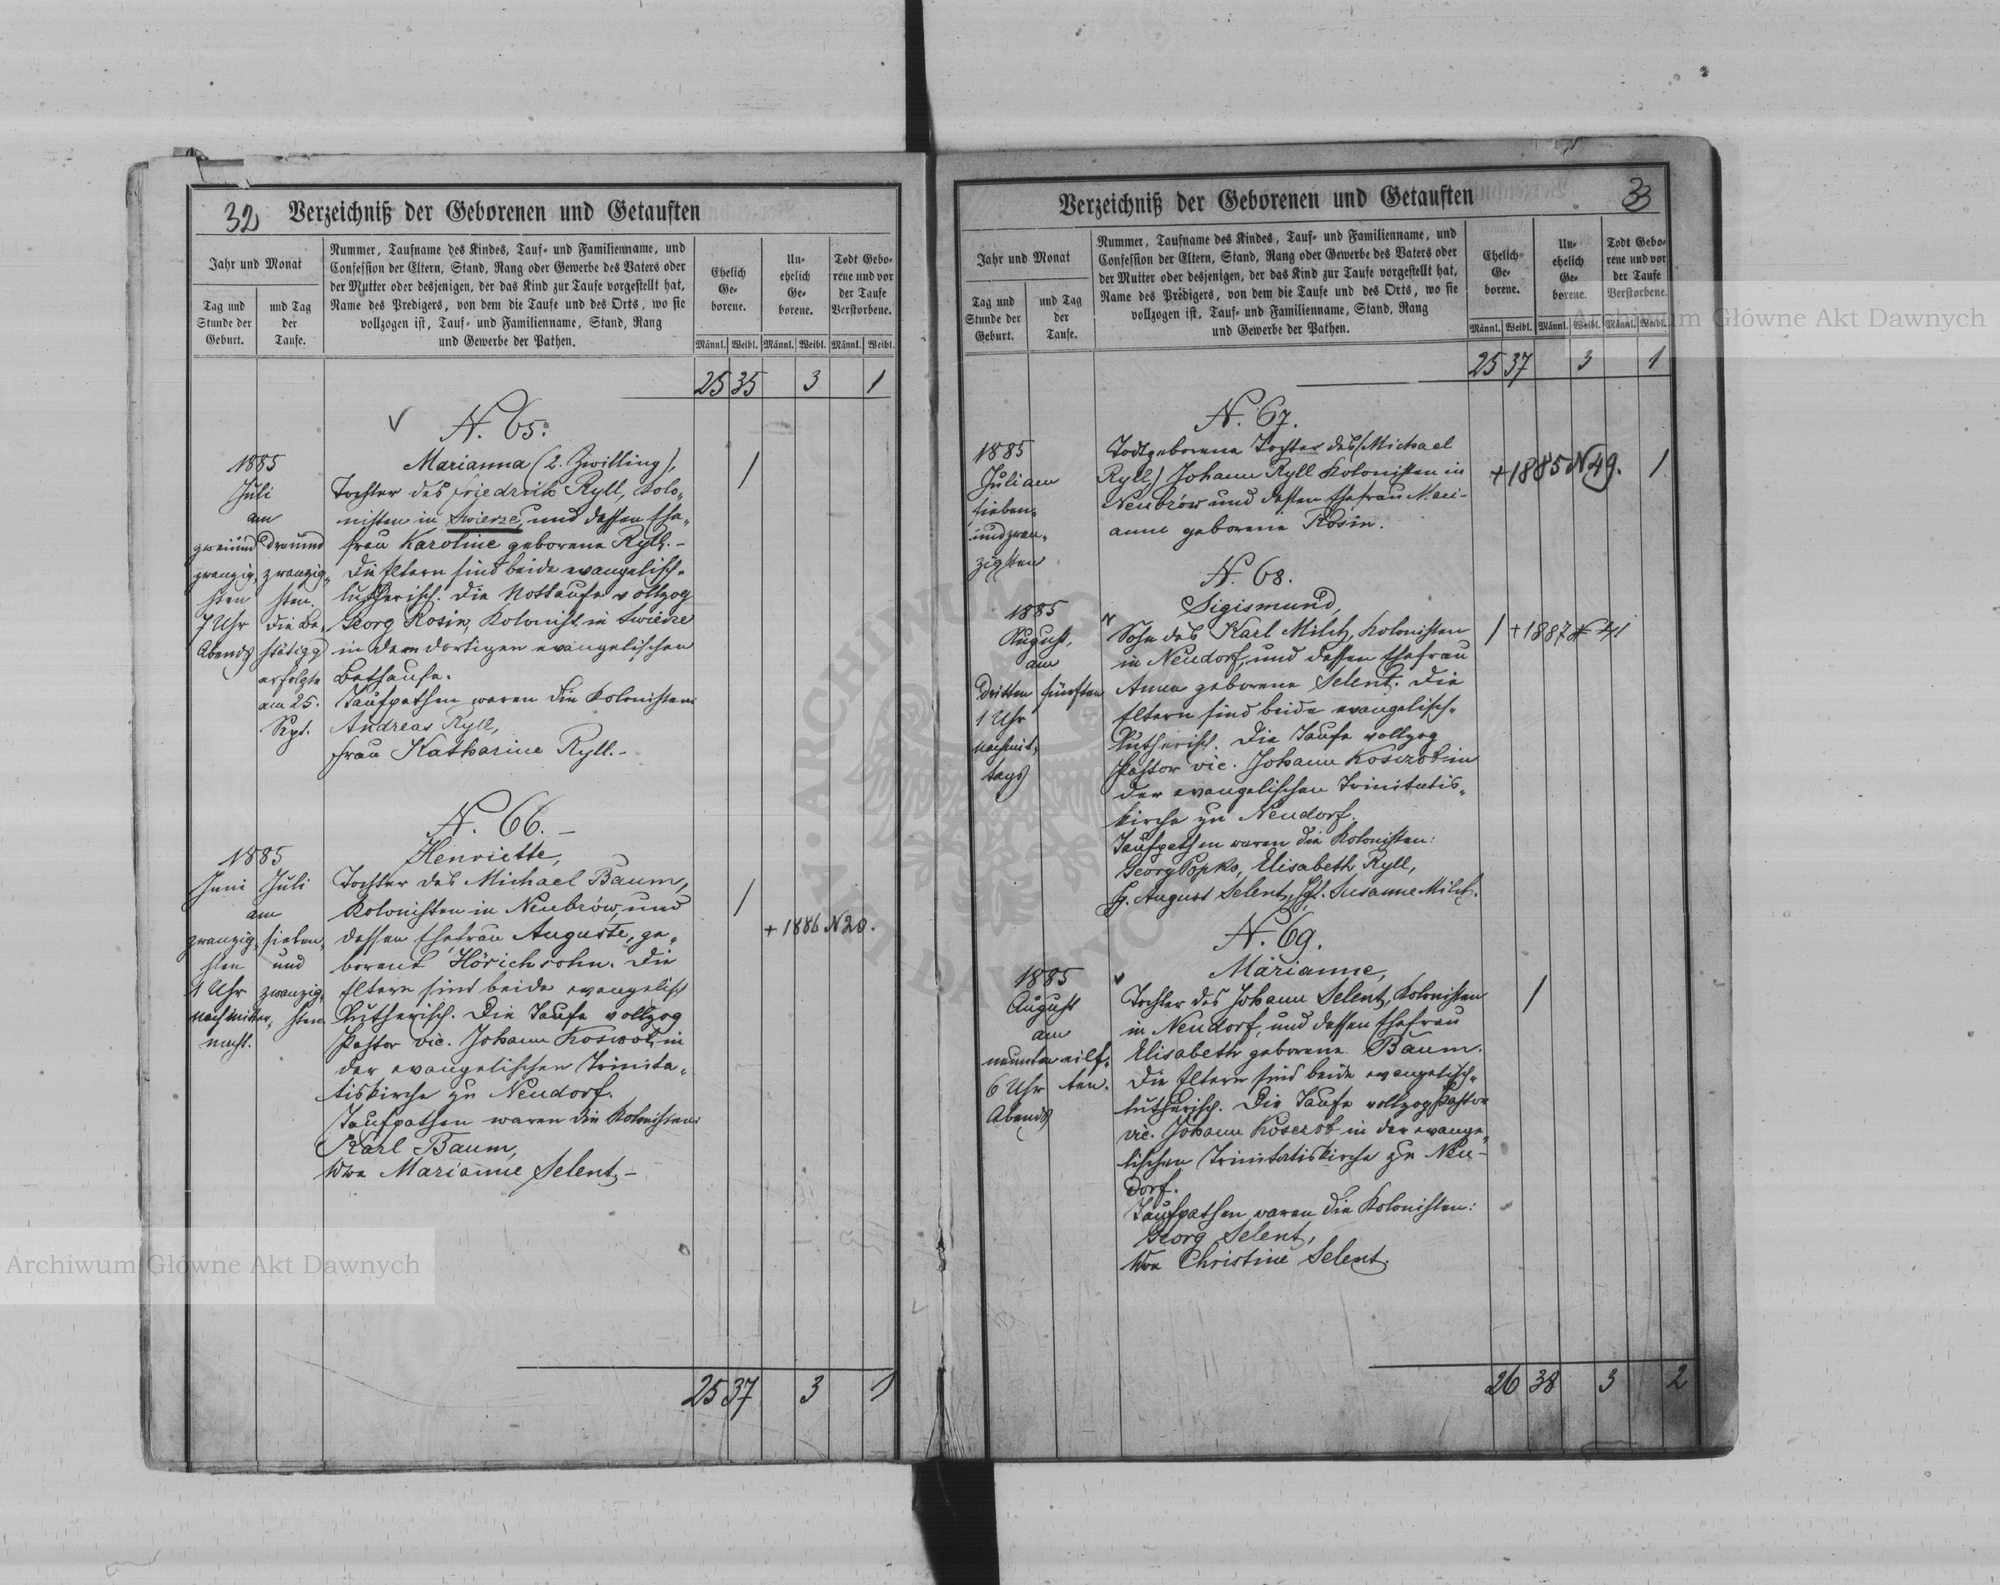 32 Verzeichniß der Geborenen und Getauften
Jahr und Monat
Tag und
Stunde der
Geburt.
und Tag
der
Taufe.
Nummer, Taufname des Kindes, Tauf- und Familienname, und
Confession der Eltern, Stand, Rang oder Gewerbe des Vaters oder
der Mutter oder desjenigen, der das Kind zur Taufe vorgestellt hat,
Name des Predigers, von dem die Taufe und des Orts, wo sie
vollzogen ist, Tauf- und Familienname, Stand, Rang
und Gewerbe der Pathen.
Ehelich
Ge-
borene.
Un-
ehelich
Ge-
borene.
Todt Gebo-
rene und vor
der Taufe
Verstorbene.
Männl. Weibl. Männl. Weibl. Männl. Weibl.
25 35 3 1
N. 65.
1885
Juli
am
zweiund
zwanzig-
sten
7 Uhr
Abends
dreiund
zwanzig-
sten.
die Be-
stätigg
erfolgte
am 25.
Spt.
Marianna (2. Zwilling),
Tochter des Friedrich Ryll, Kolo-
nisten in Swierze, und dessen Ehe-
frau Karoline geborene Ryll. -
Die Eltern sind beide evangelisch-
lutherisch. Die Nottaufe vollzog
Georg Rosin, Kolonist in Swierze
in dem dortigen evangelischen
Bethause.
Taufpathen waren die Kolonisten:
Andreas Ryll,
Frau Katharine Ryll. -
1
N. 66. -
1885
Juni Juli
am
zwanzig-
sten
1 Uhr
nachmitter-
nacht.
sieben-
und
zwanzig-
sten
Henriette,
Tochter des Michael Baum,
Kolonisten in Neubrów, und
dessen Ehefrau Auguste, ge-
borene Hörichsohn. Die
Eltern sind beide evangelisch
lutherisch. Die Taufe vollzog
Pastor vic. Johann Koserob, in
der evangelischen Trinita-
tiskirche zu Neudorf.
Taufpathen waren die Kolonisten:
Karl Baum,
Wwe Marianne Selent, -
1
+ 1886 N 20.
25 37 3 1
Verzeichniß der Geborenen und Getauften 33
Jahr und Monat
Tag und
Stunde der
Geburt.
und Tag
der
Taufe.
Nummer, Taufname des Kindes, Tauf- und Familienname, und
Confession der Eltern, Stand, Rang oder Gewerbe des Vaters oder
der Mutter oder desjenigen, der das Kind zur Taufe vorgestellt hat,
Name des Predigers, von dem die Taufe und des Orts, wo sie
vollzogen ist, Tauf- und Familienname, Stand, Rang
und Gewerbe der Pathen.
Ehelich
Ge-
borene.
Un-
ehelich
Ge-
borene.
Todt Gebo-
rene und vor
der Taufe
Verstorbene.
Männl. Weibl. Männl. Weibl. Männl. Weibl.
25 37 3 1
N. 67.
1885
Juli am
sieben-
undzwan-
zigsten
Todtgeborene Tochter des (Michael
Ryll) Johann Ryll Kolonisten in
Neubrów und dessen Ehefrau Mari-
anne geborene Rosin.
+ 1885 N 49. 1
N. 68.
1885
August,
am
dritten
1 Uhr
nachmit-
tags
fünften
Sigismund,
Sohn des Karl Milch, Kolonisten
in Neudorf, und dessen Ehefrau
Anna geborene Selent. Die
Eltern sind beide evangelisch-
lutherisch. Die Taufe vollzog
Pastor vic. Johann Koserob in
der evangelischen Trinitatis-
kirche zu Neudorf.
Taufpathen waren die Kolonisten:
Georg Popko, Elisabeth Ryll,
H. August Selent, Susanne Milch.
1 + 1887 N 41
N. 69.
1885
August
am
neunten
6 Uhr
Abends
eilf-
ten.
Marianne,
Tochter des Johann Selent, Kolonisten
in Neudorf, und dessen Ehefrau
Elisabeth geborene Baum.
Die Eltern sind beide evangelisch-
lutherisch. Die Taufe vollzog Pastor
vic. Johann Koserob in der evange-
lischen Trinitatiskirche zu Neu-
dorf.
Taufpathen waren die Kolonisten:
Georg Selent,
Wwe Christine Selent.
1
26 38 3 2
Archiwum Główne Akt Dawnych
Archiwum Główne Akt Dawnych